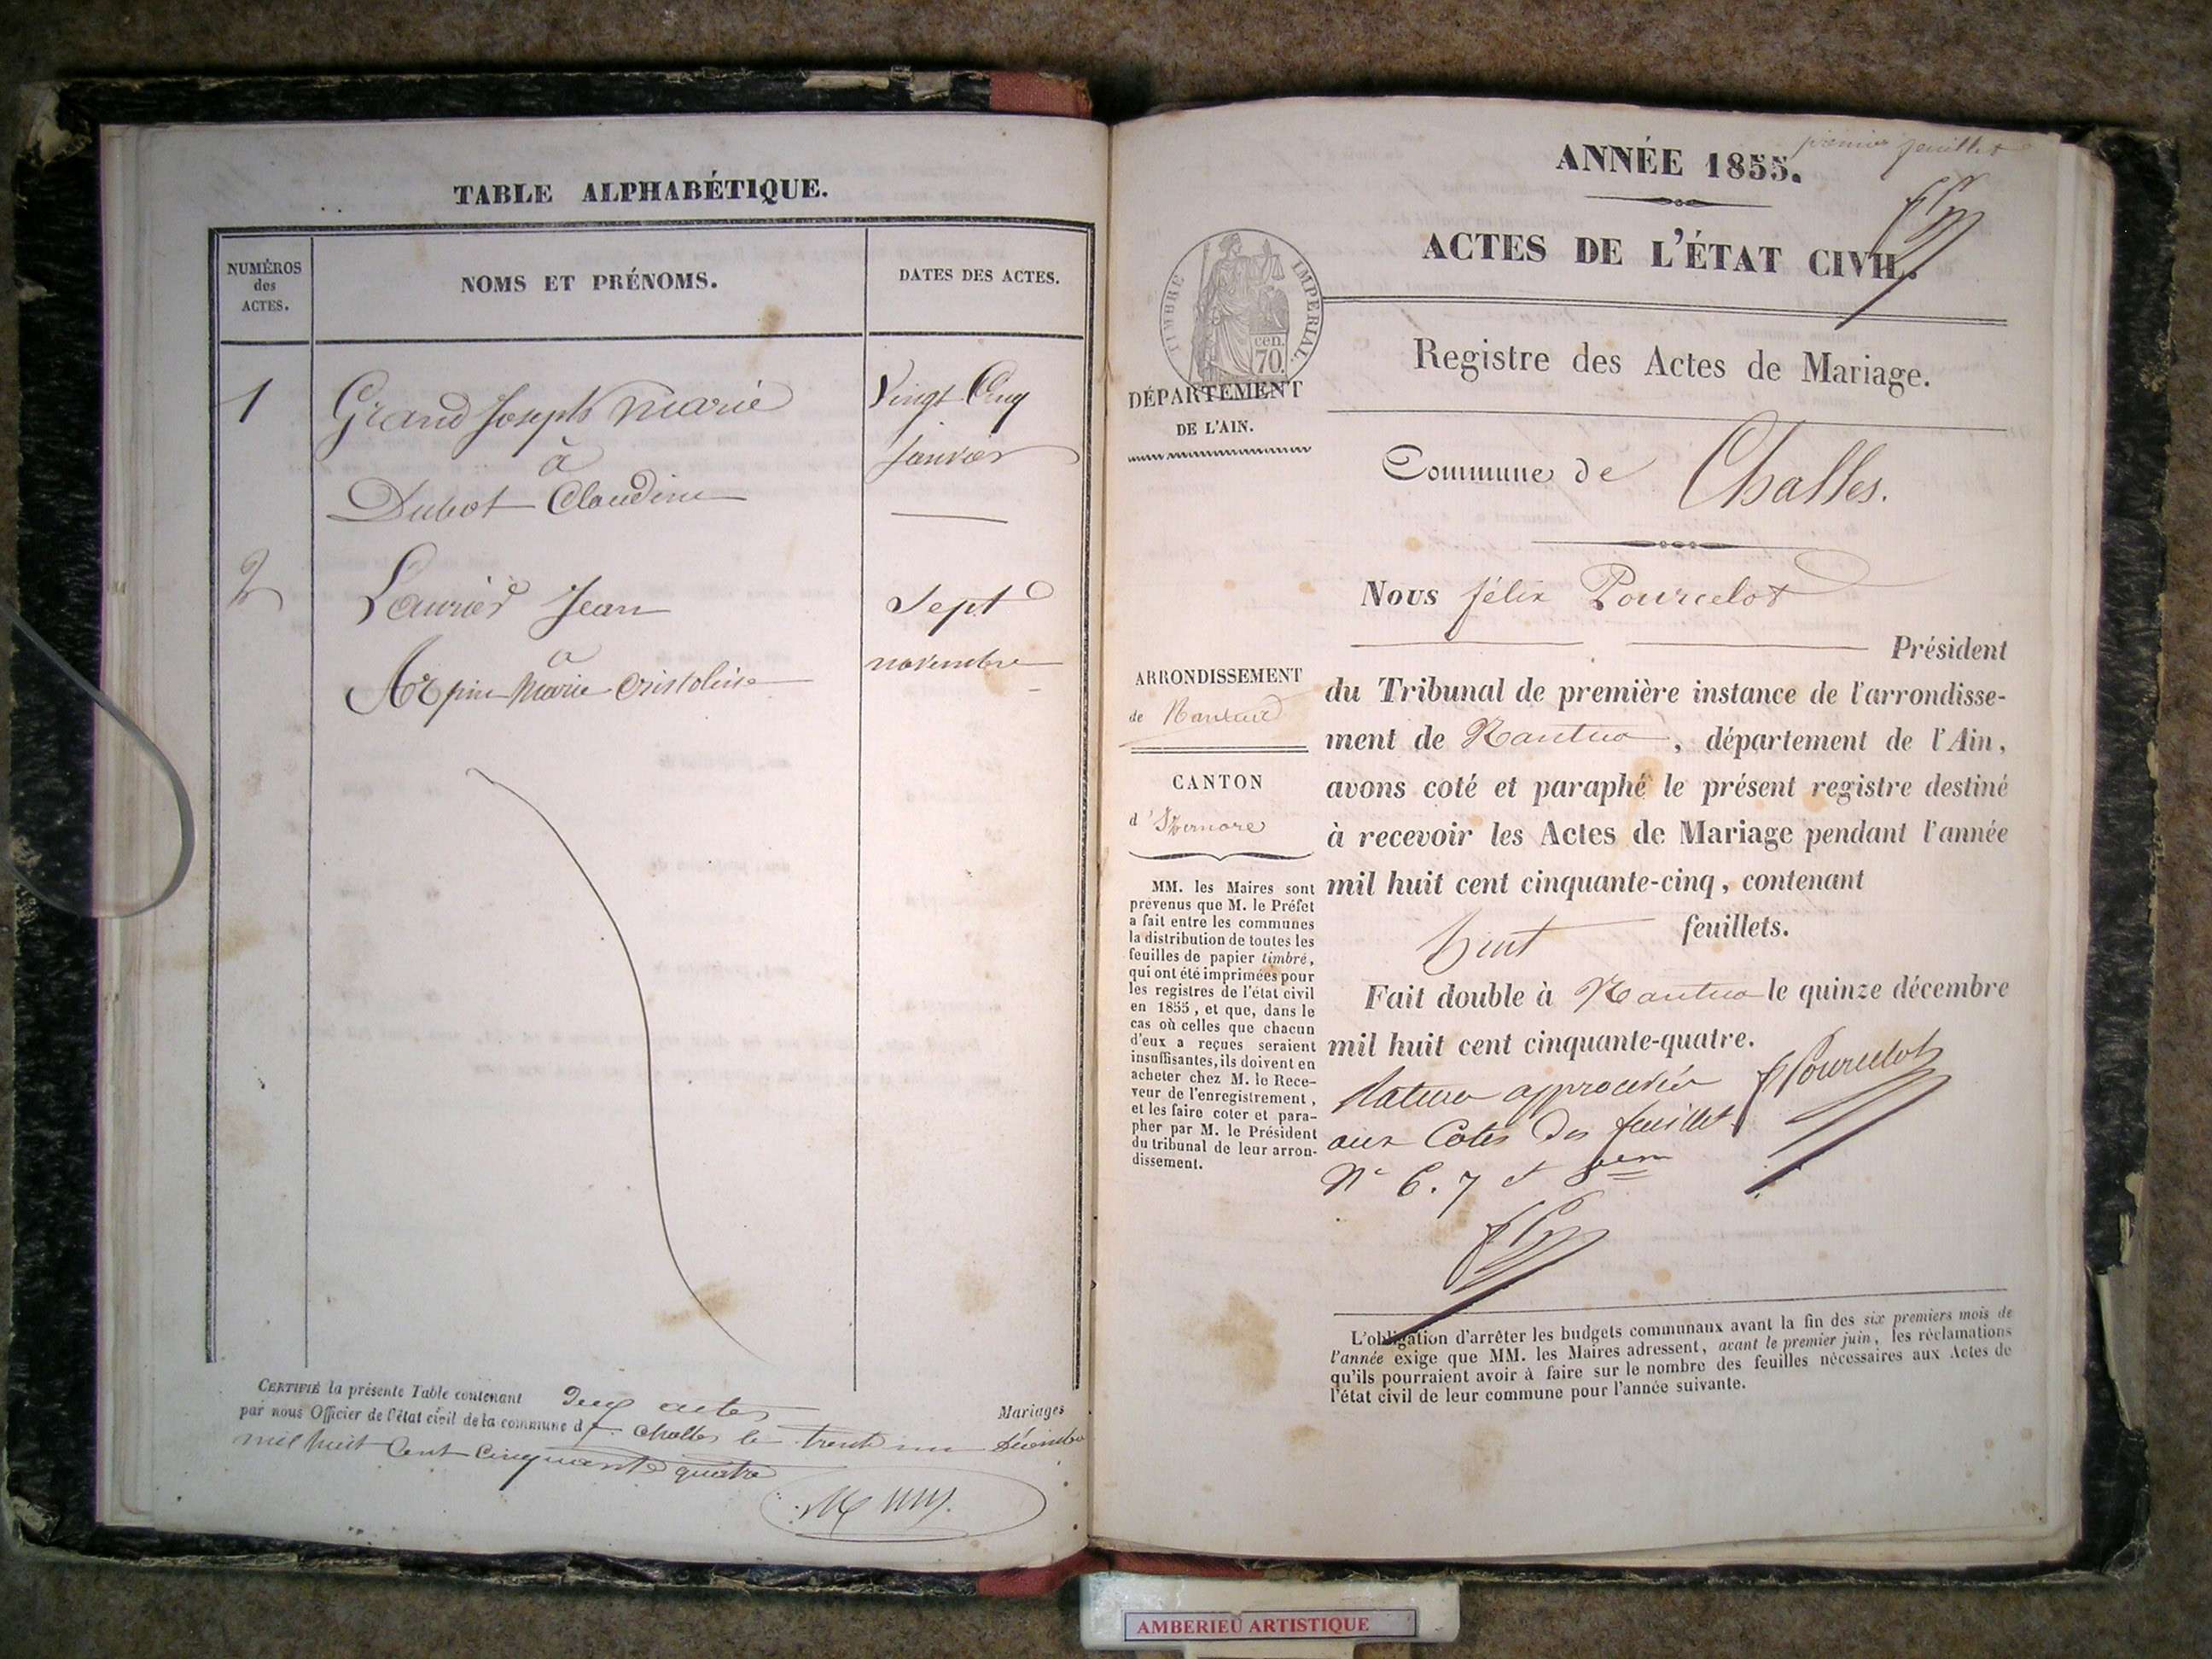 TABLE ALPHABÉTIQUE.
NUMÉROS
des
ACTES.
NOMS ET PRÉNOMS.
DATES DES ACTES.
1
Grand Joseph Marie
à
Dubot Claudine
Vingt Cinq
Janvier
2
Laurier Jean
à
Arpin Marie
Sept
novembre
CERTIFIÉ la présente Table contenant Deux actes Mariages
par nous Officier de l'état civil de la commune de Challes le trente un Décembre
mil huit Cent Cinquante quatre
premier feuillet
ANNÉE 1855.
ACTES DE L'ÉTAT CIVIL.
TIMBRE IMPERIAL.
cen.
70.
DÉPARTEMENT
DE L'AIN.
Registre des Actes de Mariage.
Commune de Challes.
Nous félix Pourcelot
Président
du Tribunal de première instance de l'arrondisse-
ment de Nantua, département de l'Ain,
avons coté et paraphé le présent registre destiné
à recevoir les Actes de Mariage pendant l'année
mil huit cent cinquante-cinq, contenant
huit feuillets.
Fait double à Nantua le quinze décembre
mil huit cent cinquante-quatre.
F Pourcelot
aux Cotes des feuillets
N° 6. 7 et 8
ARRONDISSEMENT
de Nantua
CANTON
d'Izernore
MM. les Maires sont
prévenus que M. le Préfet
a fait entre les communes
la distribution de toutes les
feuilles de papier timbré,
qui ont été imprimées pour
les registres de l'état civil
en 1855, et que, dans le
cas où celles que chacun
d'eux a reçues seraient
insuffisantes, ils doivent en
acheter chez M. le Rece-
veur de l'enregistrement,
et les faire coter et para-
pher par M. le Président
du tribunal de leur arron-
dissement.
L'obligation d'arrêter les budgets communaux avant la fin des six premiers mois de
l'année exige que MM. les Maires adressent, avant le premier juin, les réclamations
qu'ils pourraient avoir à faire sur le nombre des feuilles nécessaires aux Actes de
l'état civil de leur commune pour l'année suivante.
AMBERIEU ARTISTIQUE